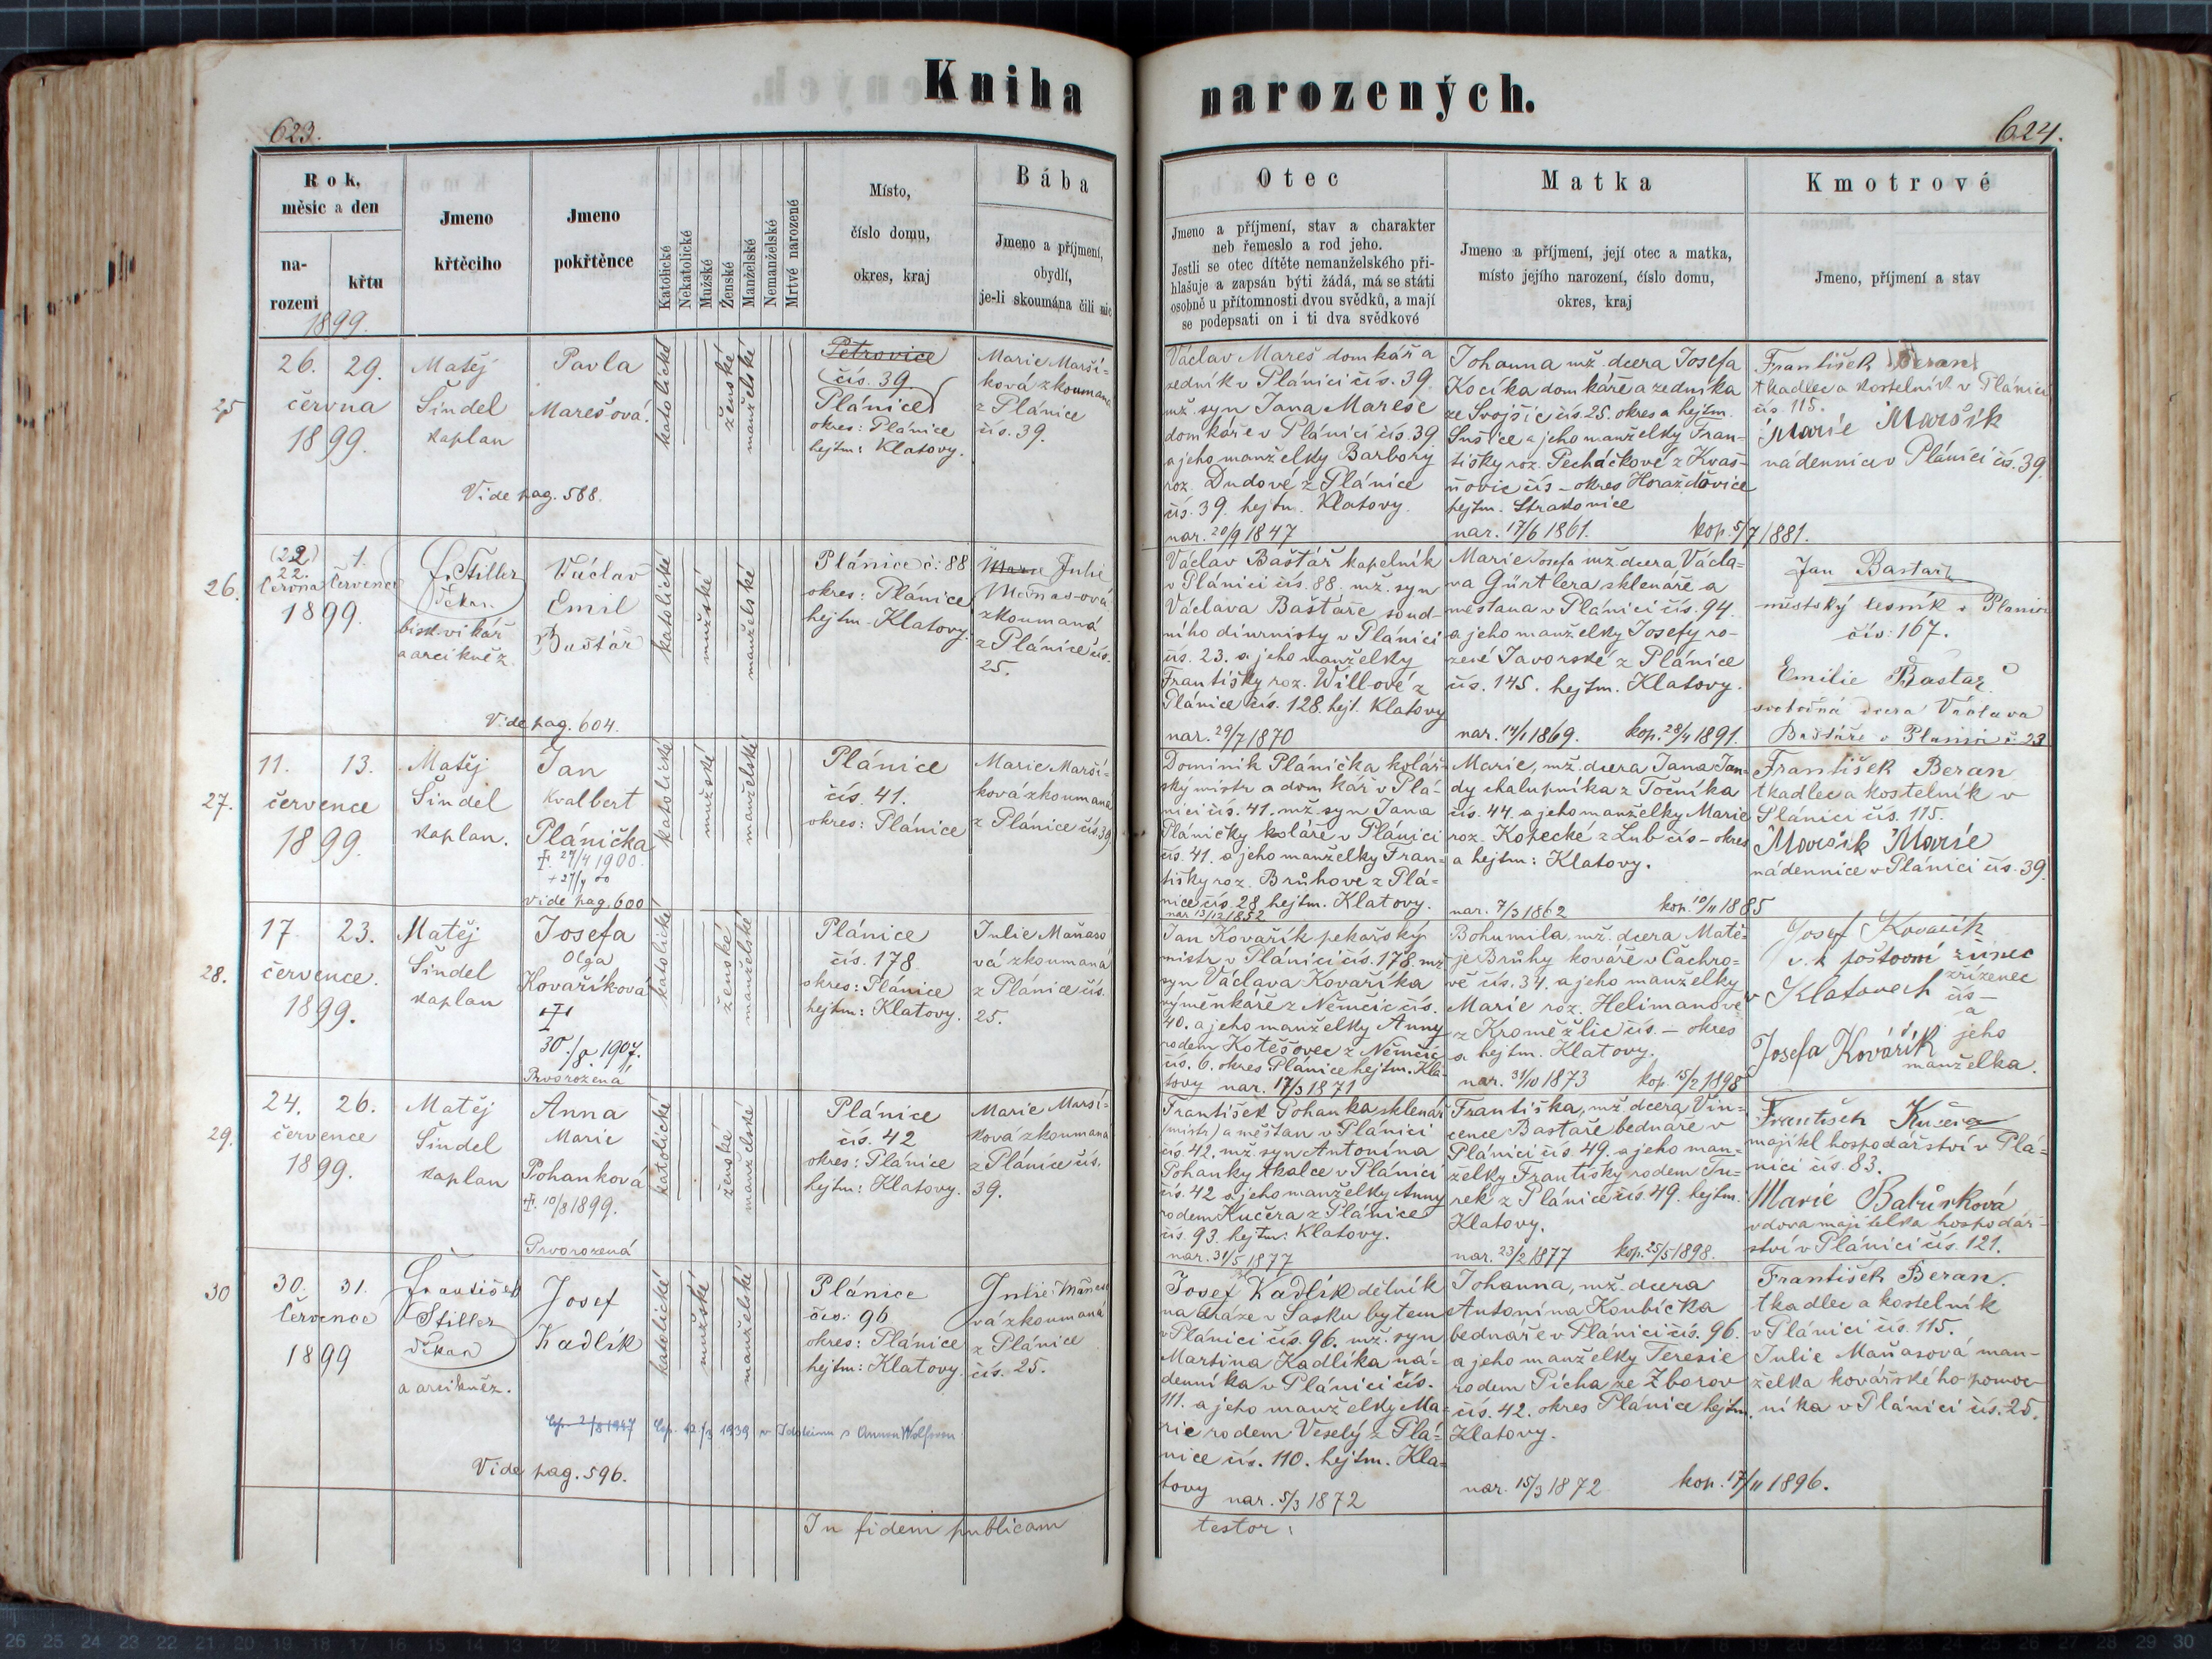 Kniha narozených.
623.
624.
Rok, měsíc a den
narození
křtu
1899.
Jmeno křtěcího
Jmeno pokřtěnce
Katolické
Nekatolické
Mužské
Ženské
Manželské
Nemanželské
Mrtvé narozené
Místo,
číslo domu,
okres, kraj
Bába
Jmeno a příjmení,
obydlí,
je-li zkoumána čili nic
Otec
Jmeno a příjmení, stav a charakter
neb řemeslo a rod jeho.
Jestli se otec dítěte nemanželského při-
hlašuje a zapsán býti žádá, má se státi
osobně u přítomnosti dvou svědků, a mají
se podepsati on i ti dva svědkové
Matka
Jmeno a příjmení, její otec a matka,
místo jejího narození, číslo domu,
okres, kraj
Kmotrové
Jmeno, příjmení a stav
25
26. 29.
června
1899.
Matěj
Šindel
kaplan
Pavla
Marešová.
katolické
ženské
manželské
Petrovice
čís. 39.
Plánice
okres: Plánice
hejtm: Klatovy.
Marie Marší-
ková zkoumaná
z Plánice
čís. 39.
Vide pag. 588.
Václav Mareš domkář a
zedník v Plánici čís. 39.
mž. syn Jana Mareše
domkáře v Plánici čís. 39
a jeho manželky Barbory
roz. Dudové z Plánice
čís. 39. hejtm. Klatovy.
nar. 20/9 1847
Johanna mž. dcera Josefa
Kocíka domkáře a zedníka
ze Svojšic čís. 25. okres a hejtm.
Sušice a jeho manželky Fran-
tišky roz. Pecháčkové z Kvaš-
ňovic čís - okres Horažďovice
hejtm. Strakonice
nar. 17/6 1861. kop. 5/7 1881.
František Beran
tkadlec a kostelník v Plánici
čís. 115.
Marie Maršík
nádennice v Plánici čís. 39.
26.
(22)
22. 1.
června července
1899.
F. Stiller
děkan
bisk. vikář
a arcikněz.
Václav
Emil
Baštář
katolické
mužské
manželské
Plánice č: 88
okres: Plánice
hejtm - Klatovy.
Marie Julie
Maňasová
zkoumaná
z Plánice čís.
25.
Vide pag. 604.
Václav Baštář kapelník
v Plánici čís. 88. mž. syn
Václava Baštáře soud-
ního diurnisty v Plánici
čís. 23. a jeho manželky
Františky roz. Will-ové z
Plánice čís. 128. hejt. Klatovy
nar. 29/7 1870
Marie Josefa mž. dcera Václa-
va Gürtlera sklenáře a
měšťana v Plánici čís. 94.
a jeho manželky Josefy ro-
zené Javorské z Plánice
čís. 145. hejtm. Klatovy.
nar. 14/1 1869. kop. 28/4 1891.
Jan Bastař
městský lesník v Plánici
čís: 167.
Emilie Bastař
svobodná dcera Václava
Baštáře v Plánici č. 23
27.
11. 13.
července
1899.
Matěj
Šindel
kaplan.
Jan
Kvalbert
Plánička
†. 27/4 1900.
+ 27/4 00
vide pag. 600
katolické
mužské
manželské
Plánice
čís. 41.
okres: Plánice
Marie Marší-
ková zkoumaná
z Plánice čís 39
Dominik Plánička kolář-
ský mistr a domkář v Plá-
nici čís. 41. mž. syn Jana
Pláničky koláře v Plánici
čís. 41. a jeho manželky Fran-
tišky roz. Brůhové z Plá-
nice čís. 28 hejtm. Klatovy.
nar 13/12 1852
Marie, mž. dcera Jana Jan-
dy chalupníka z Točníka
čís. 44. a jeho manželky Marie
roz. Kopecké z Lub čís - okres
a hejtm: Klatovy.
nar. 7/3 1862 kop. 10/11 1885
František Beran
tkadlec a kostelník v
Plánici čís. 115.
Maršik Marie
nádennice v Plánici čís. 39.
28.
17. 23.
července.
1899.
Matěj
Šindel
kaplan
Josefa
Olga
Kovaříková
†
30./8. 1907.
Prvorozená
katolické
ženské
manželské
Plánice
čís. 178
okres: Plánice
hejtm: Klatovy.
Julie Maňaso
vá zkoumaná
z Plánice čís.
25.
Jan Kovařík pekařský
mistr v Plánici čís. 178. mž
syn Václava Kovaříka
výměnkáře z Němčic čís.
40. a jeho manželky Anny
rodem Kotěšovec z Němčic
čís. 6. okres Plánice hejtm. Kla-
tovy nar. 17/3 1871
Bohumila, mž. dcera Matě-
je Brůhy kováře v Čachro-
vě čís. 34. a jeho manželky
Marie roz. Helimanové
z Kroměžlic čís. - okres
a hejtm. Klatovy.
nar. 31/10 1873 kop. 15/2 1898
Josef Kovařík
c. k poštovní
zřízenec
v Klatovech čís -
a
Josefa Kovářík jeho
manželka.
29.
24. 26.
července
1899.
Matěj
Šindel
kaplan
Anna
Marie
Pohanková
†. 10/8 1899.
Prvorozená
katolické
ženské
manželské
Plánice
čís. 42
okres: Plánice
hejtm: Klatovy.
Marie Marší-
ková zkoumaná
z Plánice čís.
39.
František Pohanka sklenář
(mistr) a měšťan v Plánici
čís. 42. mž. syn Antonína
Pohanky tkalce v Plánici
čís. 42 a jeho manželky Anny
rodem Kučera z Plánice
čís. 93. hejtm: Klatovy.
nar. 31/5 1877
Františka, mž. dcera Vin-
cence Bastaře bednáře v
Plánici čís. 49. a jeho man-
želky Františky rodem Tu-
rek z Plánice čís. 49. hejtm.
Klatovy.
nar. 23/2 1877 kop. 25/5 1898.
František Kučera
majitel hospodářství v Plá-
nici čís. 83.
Marie Babůrková
vdova majitelka hospodář-
ství v Plánici čís. 121.
30
30. 31.
července
1899
František
Stiller
děkan
a arcikněz.
Josef
Kadlík
katolické
mužské
manželské
Plánice
čís: 96
okres: Plánice
hejtm: Klatovy.
Julie Maňaso
vá zkoumaná
z Plánice
čís. 25.
Cop. 2/8 1947 Cop. 12/3 1939 v s Annou Wolfovou
Vide pag. 596.
Josef Kadlík dělník
na dráze v Sasku bytem
v Plánici čís. 96. mž. syn
Martina Kadlíka ná-
denníka v Plánici čís.
111. a jeho manželky Ma-
rie rodem Veselý z Plá-
nice čís. 110. hejtm. Kla-
tovy nar. 5/3 1872
Johanna, mž. dcera
Antonína Koubíčka
bednáře v Plánici čís. 96.
a jeho manželky Teresie
rodem Pícha ze Zborov
čís. 42. okres Plánice hejtm.
Klatovy.
nar. 15/3 1872 kop. 17/11 1896.
František Beran.
tkadlec a kostelník
v Plánici čís. 115.
Julie Maňasová man-
želka kovářského pomoc-
níka v Plánici čís. 25.
In fidem publicam
testor: